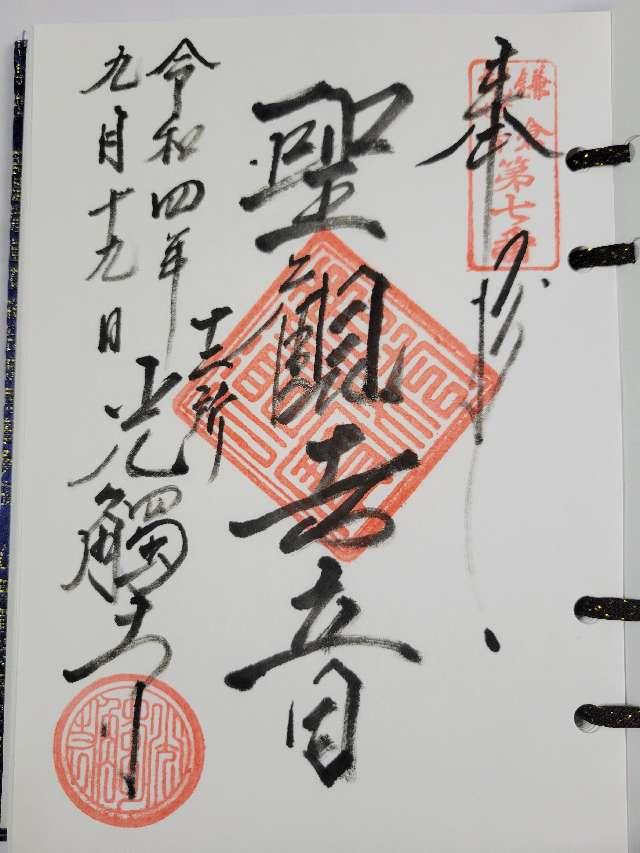 奉拝
鎌倉第七番
聖観世音
十二所
光觸寺
令和四年
九月十九日